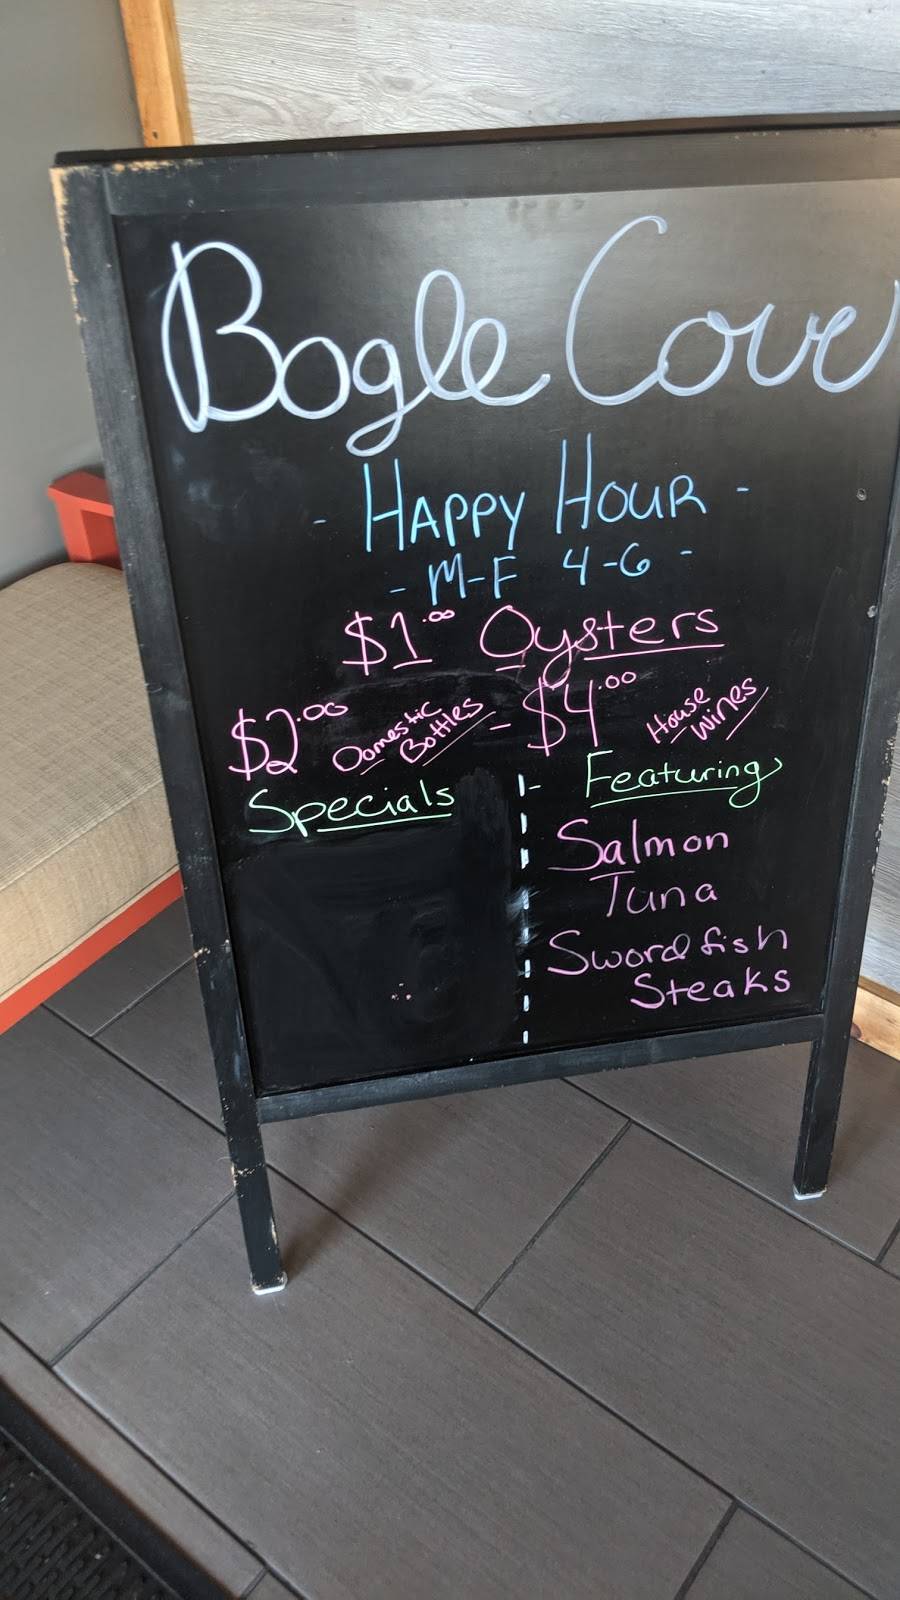 Bogle Cove
- Happy Hour -
- M-F 4-6 -
$1.00 Oysters
$2.00 Domestic Bottles - $4.00 House Wines
Specials
- Featuring
Salmon
Tuna
Swordfish
Steaks